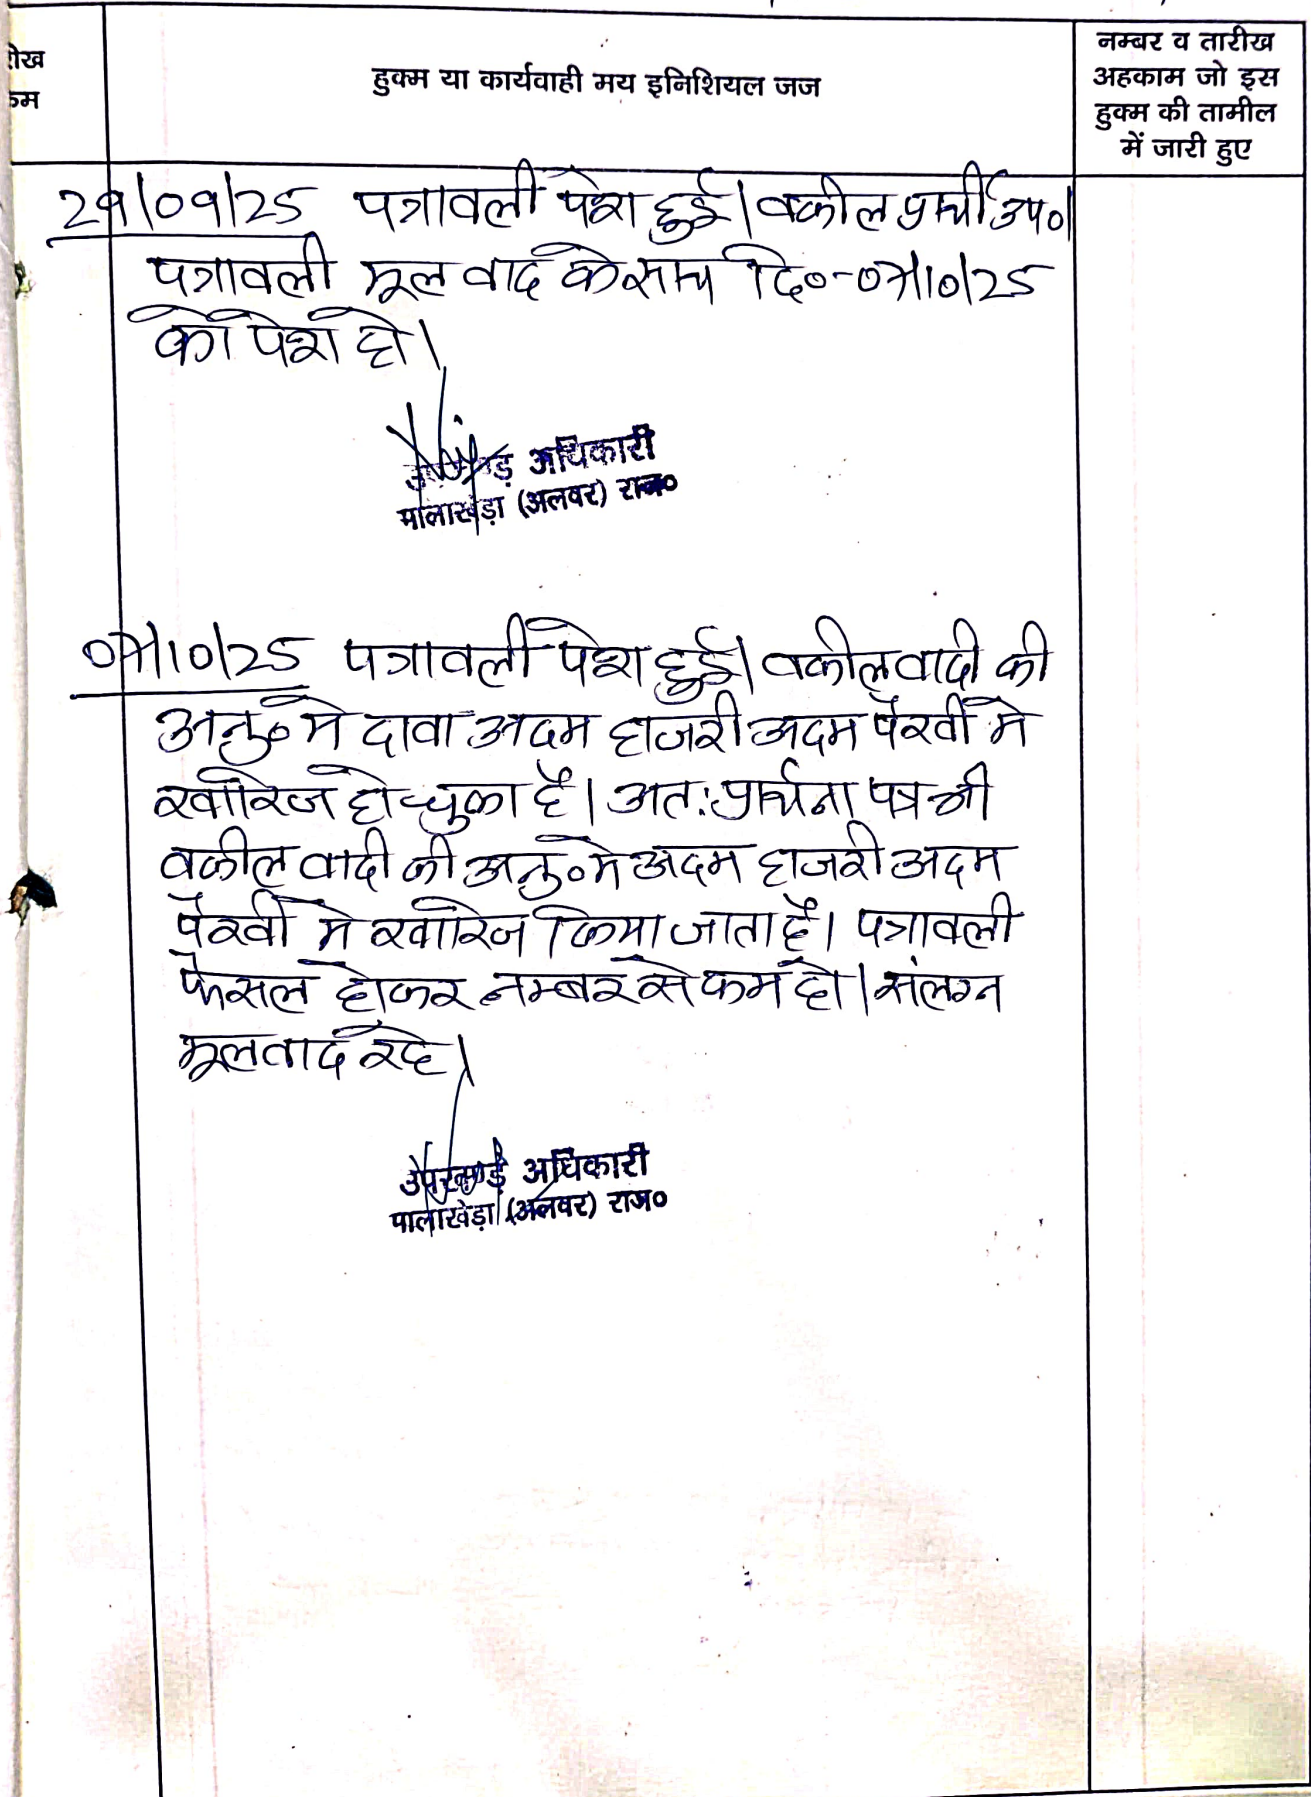 तारीख
हुक्म
हुक्म या कार्यवाही मय इनिशियल जज
नम्बर व तारीख
अहकाम जो इस
हुक्म की तामील
में जारी हुए
29/09/25 पत्रावली पेश हुई। वकील प्रार्थी उप०।
पत्रावली मूल वाद के साथ दि०-07/10/25
को पेश हो।
उपखण्ड अधिकारी
मालाखेड़ा (अलवर) राज०
07/10/25 पत्रावली पेश हुई। वकील वादी की
अनु० मे दावा अदम हाजरी अदम पैरवी मे
खारिज हो चुका है। अतः प्रार्थना पत्र भी
वकील वादी की अनु० मे अदम हाजरी अदम
पैरवी मे खारिज किया जाता है। पत्रावली
फैसल होकर नम्बर से कम हो। संलग्न
मूलवाद रहे।
उपखण्ड अधिकारी
मालाखेड़ा (अलवर) राज०